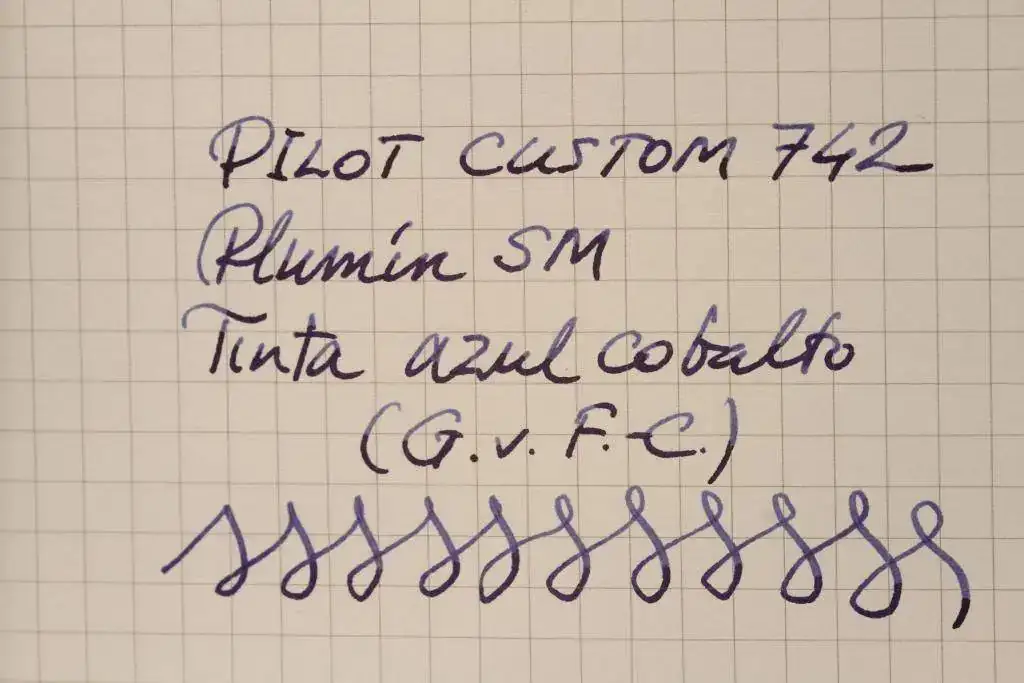 PILOT CUSTOM 742
Plumín SM
Tinta azul cobalto
(G. v. F.-C.)